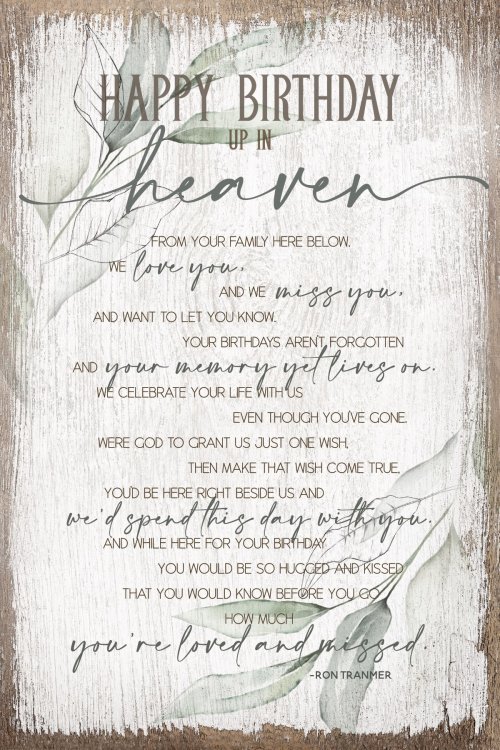 HAPPY BIRTHDAY
UP IN
heaven
FROM YOUR FAMILY HERE BELOW.
WE love you,
AND WE miss you,
AND WANT TO LET YOU KNOW.
YOUR BIRTHDAYS AREN'T FORGOTTEN
AND your memory yet lives on.
WE CELEBRATE YOUR LIFE WITH US
EVEN THOUGH YOU'VE GONE.
WERE GOD TO GRANT US JUST ONE WISH,
THEN MAKE THAT WISH COME TRUE,
YOU'D BE HERE RIGHT BESIDE US AND
we'd spend this day with you.
AND WHILE HERE FOR YOUR BIRTHDAY
YOU WOULD BE SO HUGGED AND KISSED
THAT YOU WOULD KNOW BEFORE YOU GO
HOW MUCH
you're loved and missed.
-RON TRANMER